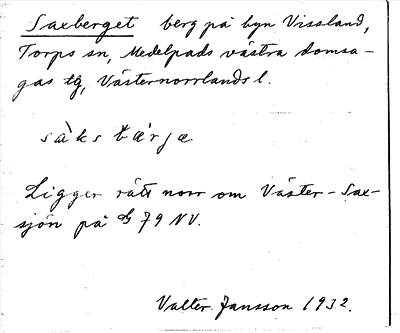 Saxberget berg på byn Vissland,
Torps sn, Medelpads västra domsa-
gas tg, Västernorrlands l.
sàks bæ̀rjæ
Ligger rätt norr om Väster-Sax-
sjön på G 79 NV.
Valter Jansson 1932.